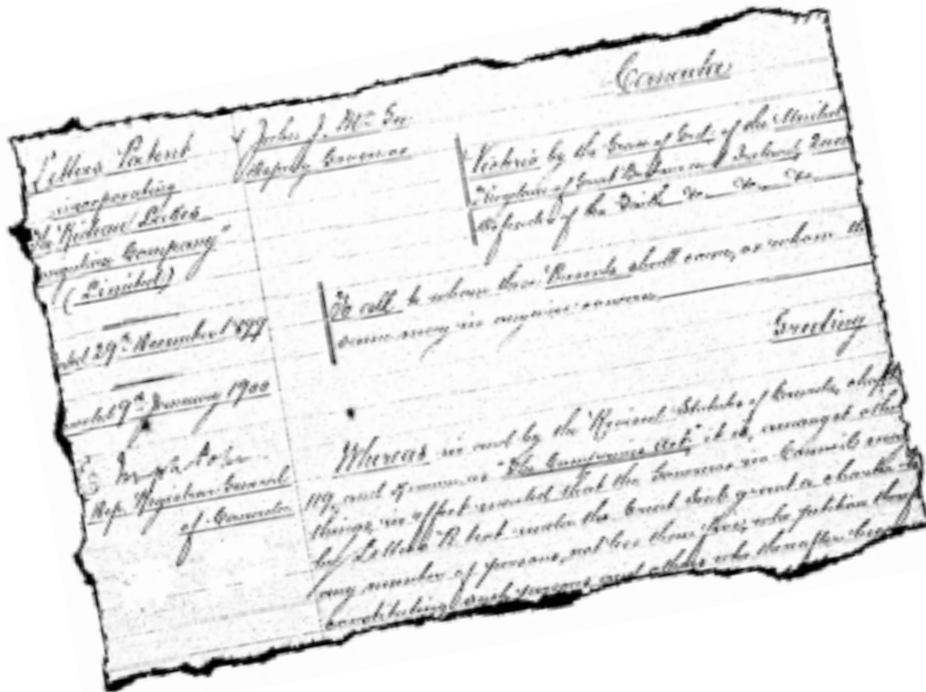 Canada
Letters Patent
incorporating
The "Rideau Lakes
Navigation Company"
(Limited)
29th December 1899
9th January 1900
Dep. Registrar General
of Canada
John J. McGee
Deputy Governor
Victoria by the Grace of God, of the United
Kingdom of Great Britain and Ireland, Queen
Defender of the Faith &c. &c. &c.
To all to whom these Presents shall come, or whom the
same may in anywise concern
Greeting
Whereas in and by the Revised Statutes of Canada, chapter
119, and known as "The Companies Act," it is, amongst other
things, in effect enacted that the Governor in Council may
by Letters Patent under the Great Seal grant a charter to
any number of persons, not less than five, who petition therefor
constituting such persons, and others who thereafter become